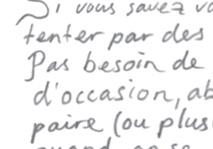 Si vous savez vo
tenter par des
Pas besoin de
d'occasion, ab
paire (ou plus
quand on se